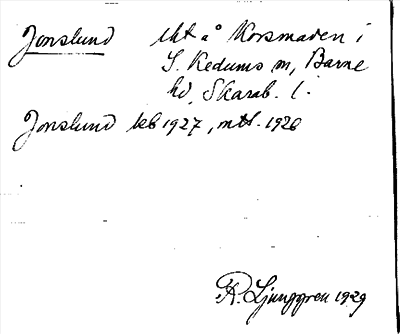 Jonslund lht å Korsmaden i
S. Kedums sn, Barne
hd, Skarab. l.
Jonslund kb 1927, mtl. 1926
R. Ljunggren 1929